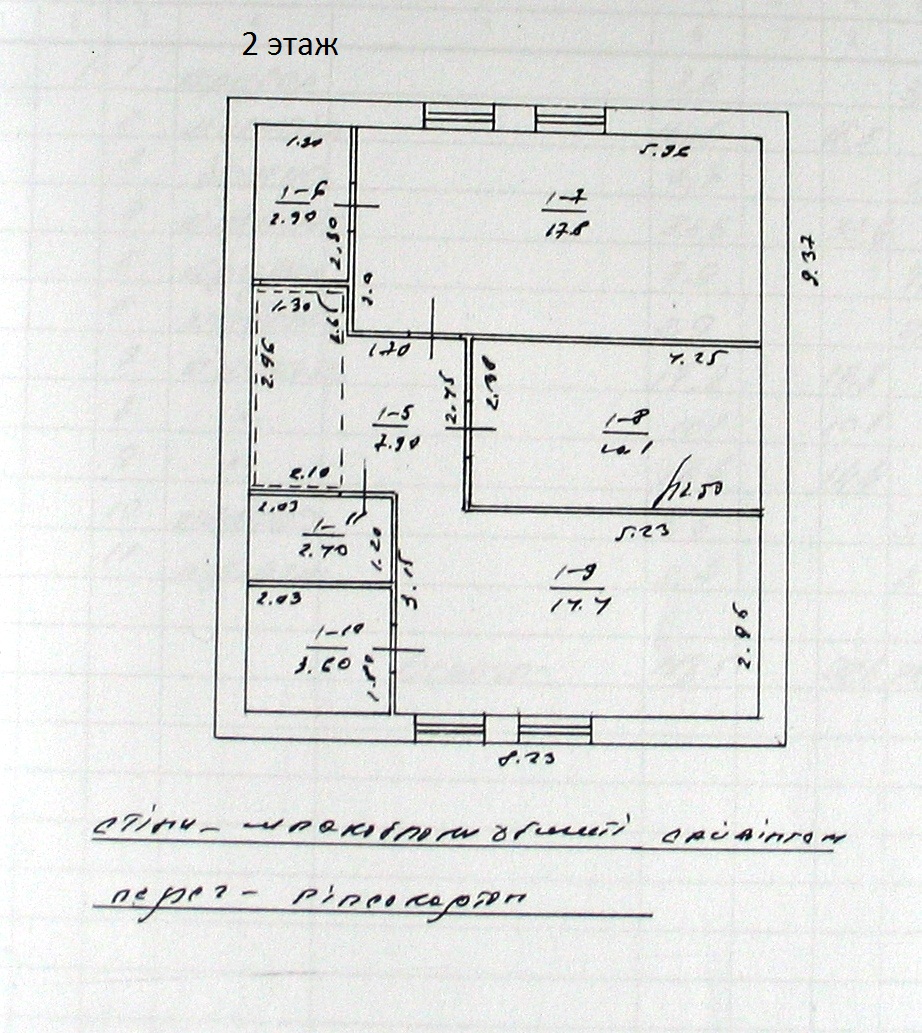 2 этаж
1.30
5.96
1-6
2.90
1-7
17.8
2.30
3.0
9.37
1.30
2.65
1.70
4.25
2.96
2.45
2.38
1-5
7.90
1-8
10.1
2.10
12.50
2.03
5.23
1-11
2.40
1.20
3.15
1-9
2.03
2.96
1-10
3.60
1.80
8.23
стіни - шлакоблоки обшиті сайдінгом
перег - гіпсокартон